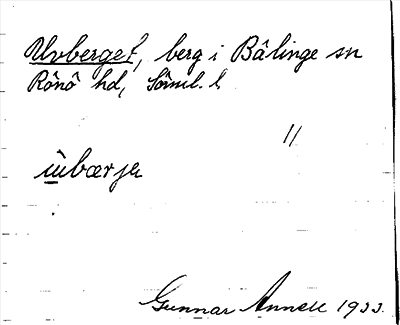 Uvberget, berg i Bälinge sn
Rönö hd, Söml. l.
//
ùbærjα
Gunnar Annell 1933.